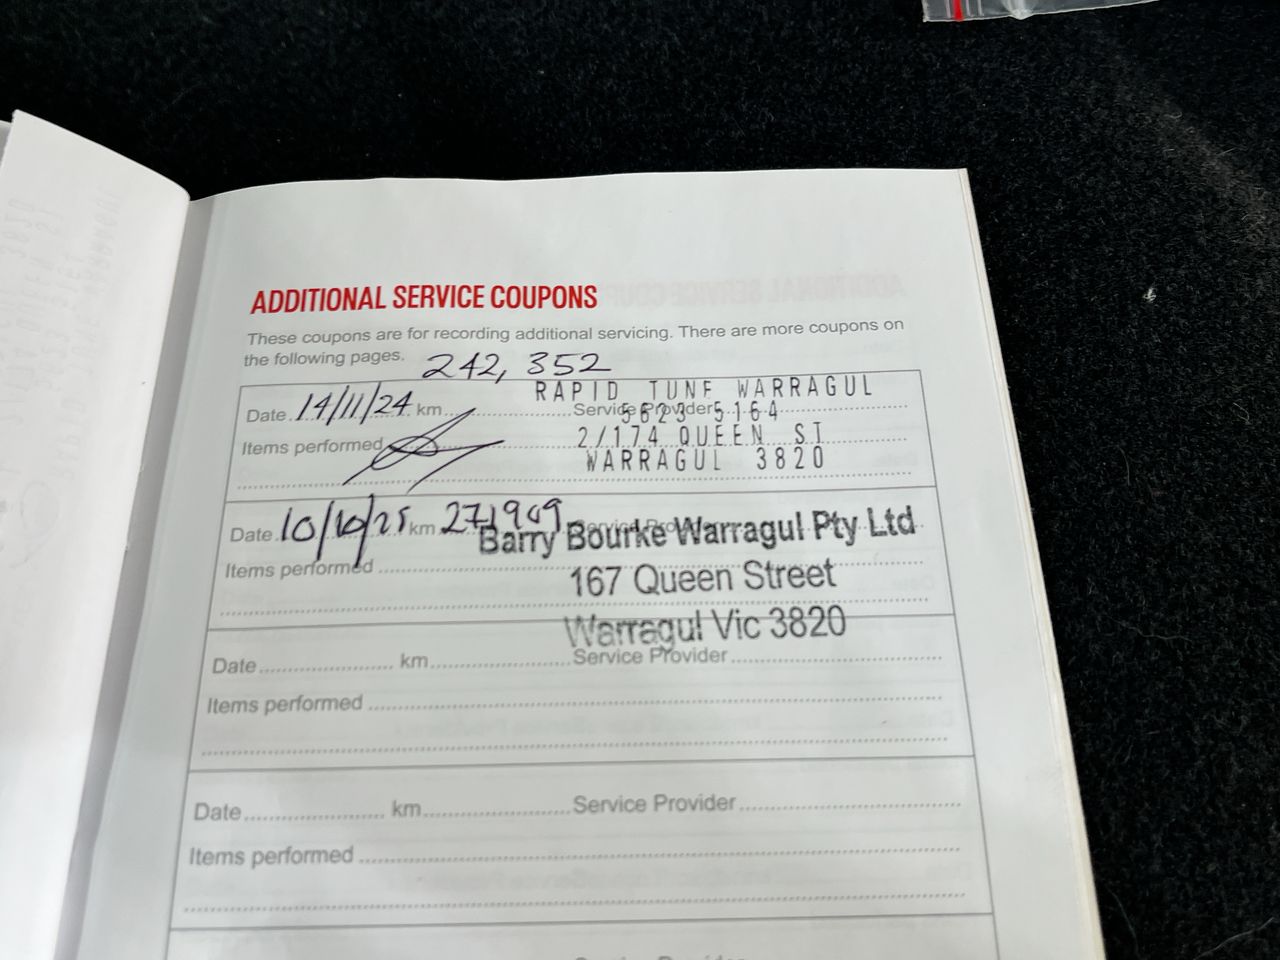 ADDITIONAL SERVICE COUPONS
These coupons are for recording additional servicing. There are more coupons on
the following pages.
242, 352
RAPID TUNE WARRAGUL
Date 14/11/24 km Service Provider
5623 5164
Items performed 2/174 QUEEN ST
WARRAGUL 3820
Date 10/10/25 km 271909 Service Provider
Barry Bourke Warragul Pty Ltd
Items performed
167 Queen Street
Warragul Vic 3820
Date km Service Provider
Items performed
Date km Service Provider
Items performed